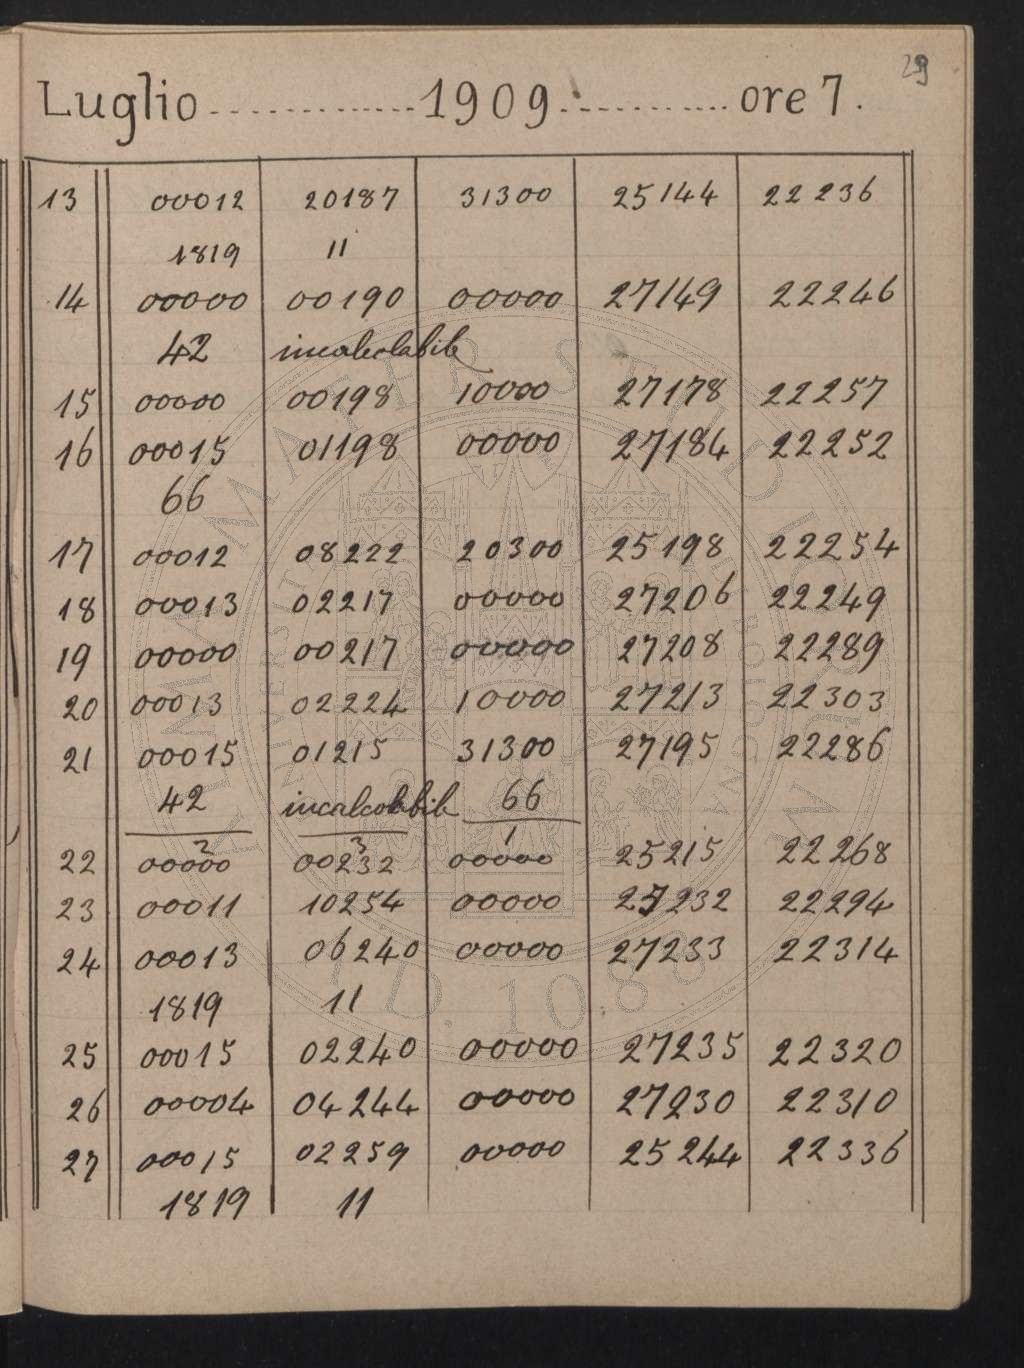 29
Luglio ............ 1909 ............ ore 7.
13 00012 20187 31300 25144 22236
1819 11
14 00000 00190 00000 27149 22246
42 incalcolabile
15 00000 00198 10000 27178 22257
16 00015 01198 00000 27184 22252
66
17 00012 08222 20300 25198 22254
18 00013 02217 00000 27206 22249
19 00000 00217 00000 27208 22289
20 00013 02224 10000 27213 22303
21 00015 01215 31300 27195 22286
42 incalcolabile 66
2 3 1
22 00000 00232 00000 25215 22268
23 00011 10254 00000 27232 22294
24 00013 06240 00000 27233 22314
1819 11
25 00015 02240 00000 27235 22320
26 00004 04244 00000 27230 22310
27 00015 02259 00000 25244 22336
1819 11
ALMA MATER STUDIORUM
A.D. 1088